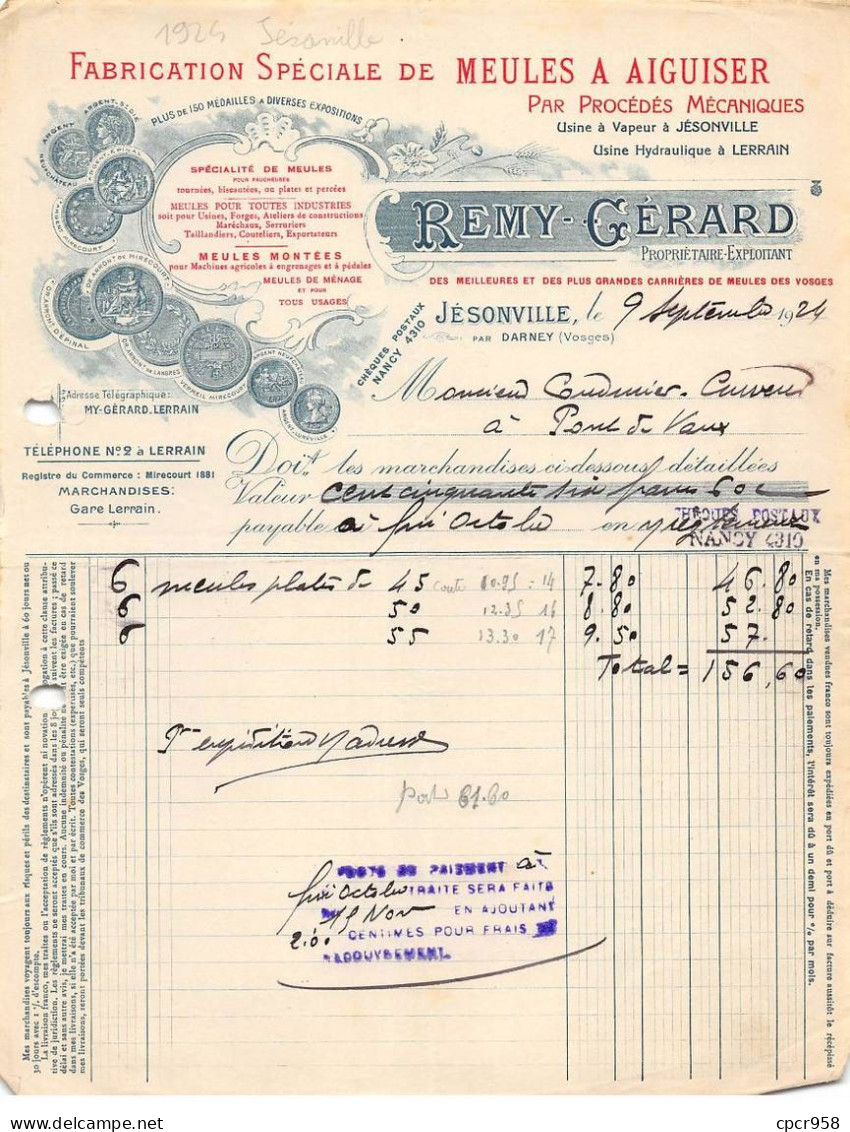 1924 Jésonville
FABRICATION SPÉCIALE DE MEULES A AIGUISER
PAR PROCÉDÉS MÉCANIQUES
Usine à Vapeur à JÉSONVILLE
Usine Hydraulique à LERRAIN
PLUS DE 150 MÉDAILLES A DIVERSES EXPOSITIONS
ARGENT NEUFCHÂTEAU
ARGENT ST DIÉ
ARGENT ÉPINAL
ARGENT MIRECOURT
DE MIRECOURT
D'ÉPINAL
DE LANGRES
VERMEIL MIRECOURT
ARGENT NEUFCHÂTEAU
ARGENT LUNÉVILLE
SPÉCIALITÉ DE MEULES
POUR FAUCHEUSES
tournées, biscautées, ou plates et percées
MEULES POUR TOUTES INDUSTRIES
soit pour Usines, Forges, Ateliers de constructions
Maréchaux, Serruriers
Taillandiers, Couteliers, Exportateurs
MEULES MONTÉES
pour Machines agricoles à engrenages et à pédales
MEULES DE MÉNAGE
ET POUR
TOUS USAGES
REMY-GÉRARD
PROPRIÉTAIRE-EXPLOITANT
DES MEILLEURES ET DES PLUS GRANDES CARRIÈRES DE MEULES DES VOSGES
CHÈQUES POSTAUX
NANCY 4310
JÉSONVILLE, le 9 Septembre 1924
PAR DARNEY (Vosges)
Monsieur
à Pont de Vaux
Adresse Télégraphique:
MY-GÉRARD.LERRAIN
TÉLÉPHONE No 2 à LERRAIN
Registre du Commerce : Mirecourt 1881
MARCHANDISES:
Gare Lerrain.
Doit les marchandises ci-dessous détaillées
Valeur cent cinquante six francs 60 c
payable à fin Octobre en
CHÈQUES POSTAUX
NANCY 4310
6 meules plates de 45 10.95 = 14 7.80 46.80
6 50 12.35 16 8.80 52.80
6 55 13.30 17 9.50 57.
Total = 156,60
port 61.60
PAIEMENT à
fin Octobre TRAITE SERA FAITE
15 Nov EN AJOUTANT
2.00 CENTIMES POUR FRAIS
RECOUVREMENT.
Mes marchandises voyagent toujours aux risques et périls des destinataires et sont payables à Jésonville à 60 jours net ou
30 jours avec 1 % d'escompte.
La livraison franco, mes traites ou l'acceptation de règlements n'opèrent ni novation
dérogation à cette clause attributive de juridiction. Les règlements ne seront acceptés que s'ils sont adressés dans les 8 jours
suivent les factures ; passé ce
délai et sans autre avis, je mettrai mes traites en cours. Aucune indemnité ou pénalité ne
être exigée en cas de retard
dans mes livraisons, si elle n'a été acceptée par moi et par écrit. Toutes contestations (expertises, etc.) que pourraient soulever
mes livraisons, seront portées devant les tribunaux de commerce des Vosges, qui seront seuls compétents
Mes marchandises vendues franco sont toujours expédiées en port dû et port à déduire sur facture aussitôt le récépissé
en ma possession.
En cas de retard dans les paiements, l'intérêt sera dû à un demi pour % par mois.
cpcr958